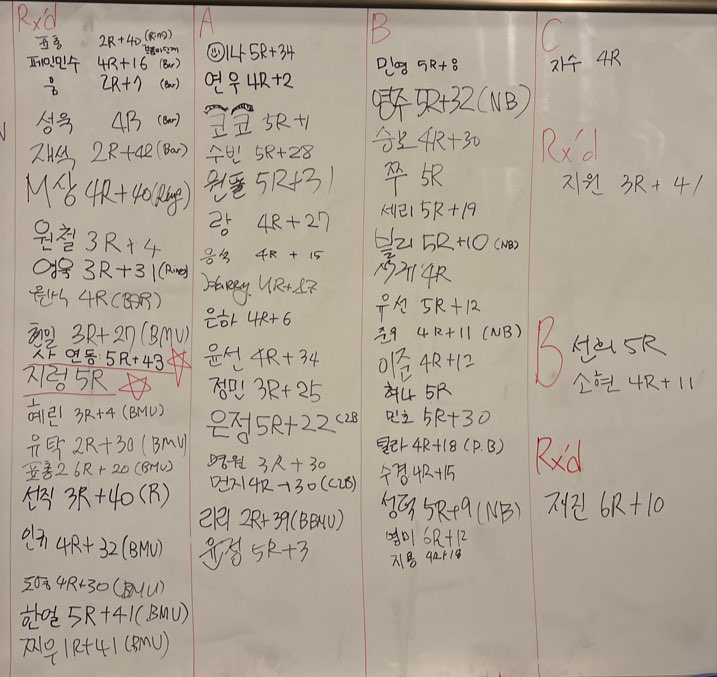 Rx'd
표홍 2R+40 (Ring)
페인민수 4R+16 (Bar)
웅 2R+7 (Bar)
성욱 4R (Bar)
재석 2R+42 (Bar)
M상 4R+40 (Ring)
원철 3R+4
영욱 3R+31 (Ring)
원식 4R (BAR)
현밀 3R+27 (BMU)
사 연동 5R+43
지렁 5R
혜린 3R+4 (BMU)
유탁 2R+30 (BMU)
표홍2 6R+20 (BMU)
선직 3R+40 (R)
인키 4R+32 (BMU)
도영 4R+30 (BMU)
한얼 5R+41 (BMU)
찌우 1R+41 (BMU)
A
이나 5R+34
연우 4R+2
코코 3R+1
수빈 5R+28
원풀 5R+31
랑 4R+27
응석 4R+15
Harry 4R+27
은하 4R+6
윤선 4R+34
정민 3R+25
은정 5R+22 C2B
명원 3R+30
먼지 4R+30 (C2B)
리리 2R+39 (BBMU)
윤정 5R+3
B
민영 5R+8
영주 5R+32 (NB)
승보 4R+30
쭈 5R
세리 5R+19
블리 5R+10 (NB)
4R
우선 5R+12
준우 4R+11 (NB)
이준 4R+12
혀나 5R
민초 5R+30
틸라 4R+18 (P.B)
수경 4R+15
성덕 5R+9 (NB)
영미 6R+12
지용 4R+18
C
자수 4R
Rx'd
지원 3R+41
B
선희 5R
소현 4R+11
Rx'd
재진 6R+10